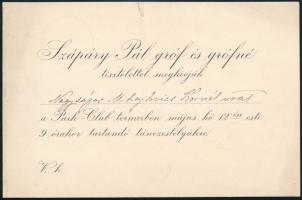 Szápáry Pál gróf és grófné
tisztelettel meghívják
Nagyságos Mihajlovics Kornél urat
a Park-Club termeiben május hó 12én este
9 órakor tartandó tánczestélyükre.
V. k.